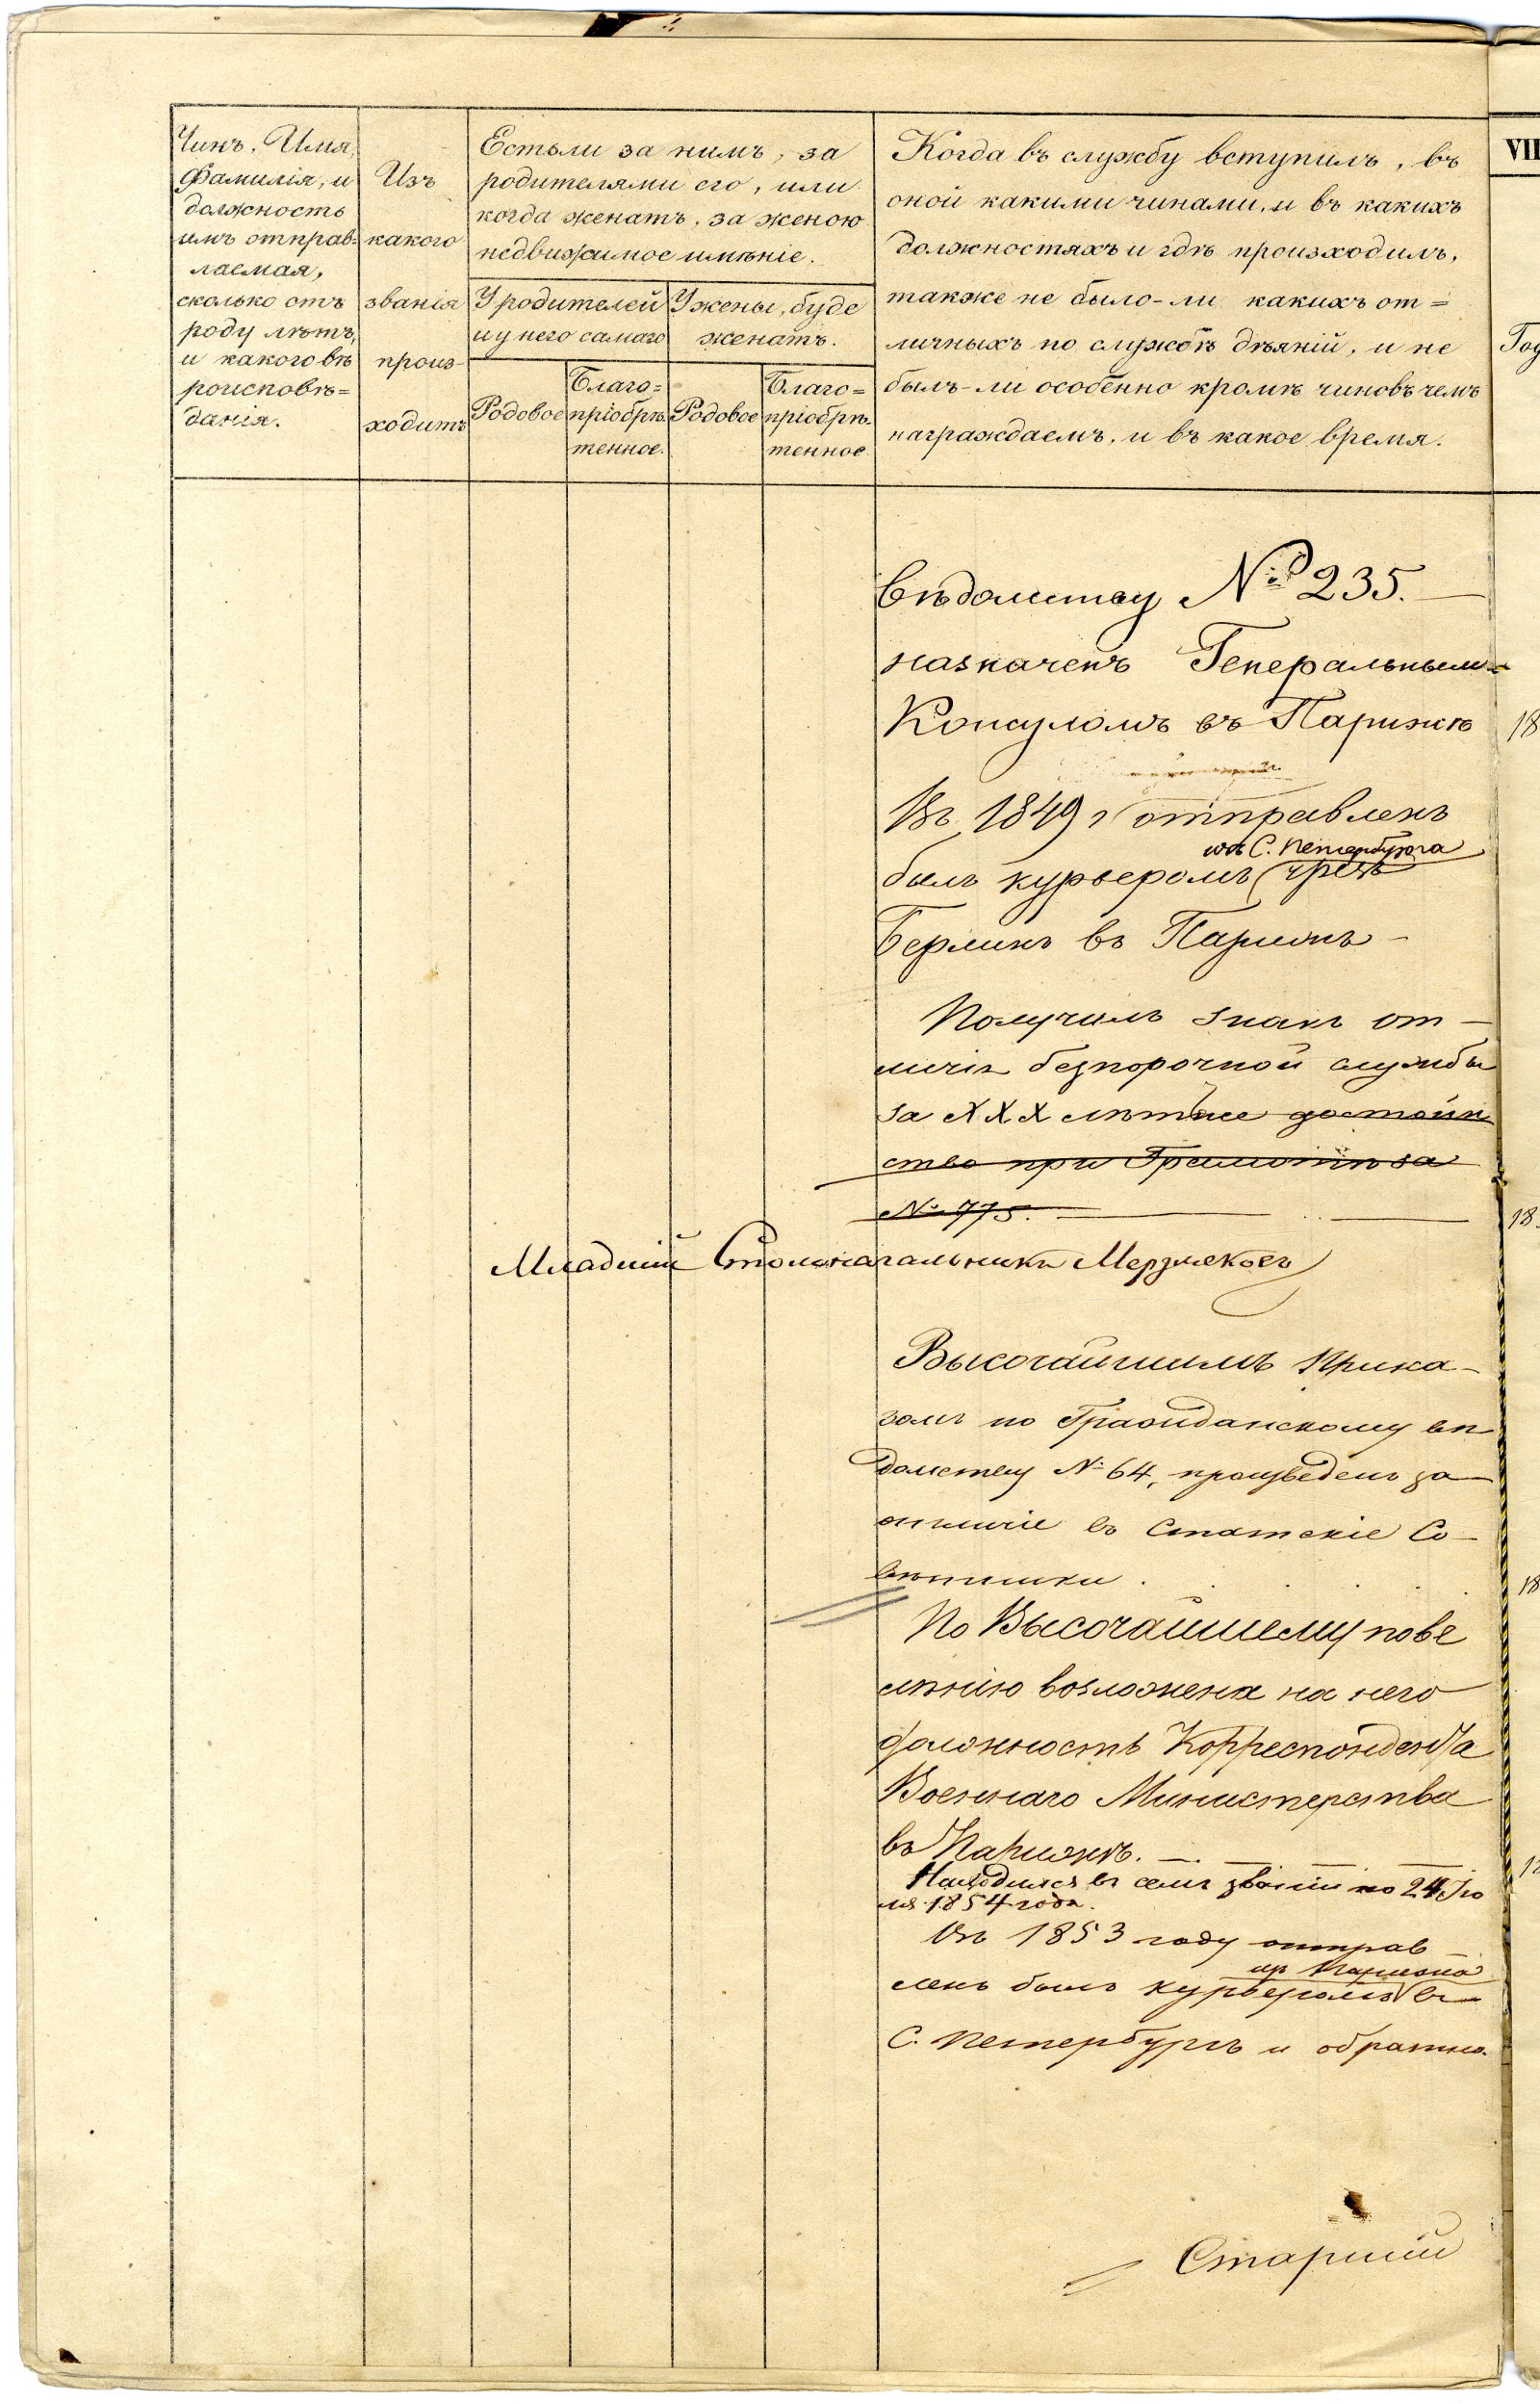 Чинъ, Имя,
Фамилія, и
должность
имъ отправ-
ляемая,
сколько отъ
роду лѣтъ,
и какого вѣ
роисповѣ=
данія.
Изъ
какого
званія
произ-
ходитъ
Естьли за нимъ, за
родителями его, или
когда женатъ, за женою
недвижимое имѣніе.
У родителей
и у него самаго
У жены, буде
женатъ.
Родовое
Благо=
пріобрѣ-
тенное.
Родовое
Благо=
пріобрѣ-
тенное
Когда въ службу вступилъ, въ
оной какими чинами, и въ какихъ
должностяхъ и гдѣ произходилъ,
также не было-ли какихъ от=
личныхъ по службѣ дѣяній, и не
былъ-ли особенно кромѣ чиновъ чемъ
награждаемъ, и въ какое время.
VII
Год
вѣдомству № 235. —
назначенъ Генеральнымъ
Консуломъ въ Парижѣ
18
Въ 1849 г отправленъ
изъ С. Петербурга
былъ курьеромъ чрезъ
Берлинъ въ Парижъ —
Получилъ знакъ от —
личія безпорочной службы
за XXX лѣтъ достоин
ство при Грамотѣ за
№ 775.
18
Младшій Столоначальникъ Мерзляковъ
Высочайшимъ прика-
зомъ по Гражданскому вѣ
домству № 64, произведенъ за
отличіе въ Статскіе Со-
вѣтники .
18
По Высочайшему пове
лѣнію возложена на него
должность Корреспондента
Военнаго Министерства
въ Парижѣ. —
Находился въ семъ званіи по 24 Ію
ля 1854 года.
Въ 1853 году отправ
изъ Парижа
ленъ былъ курьеромъ въ
С. Петербургъ и обратно.
Старшій